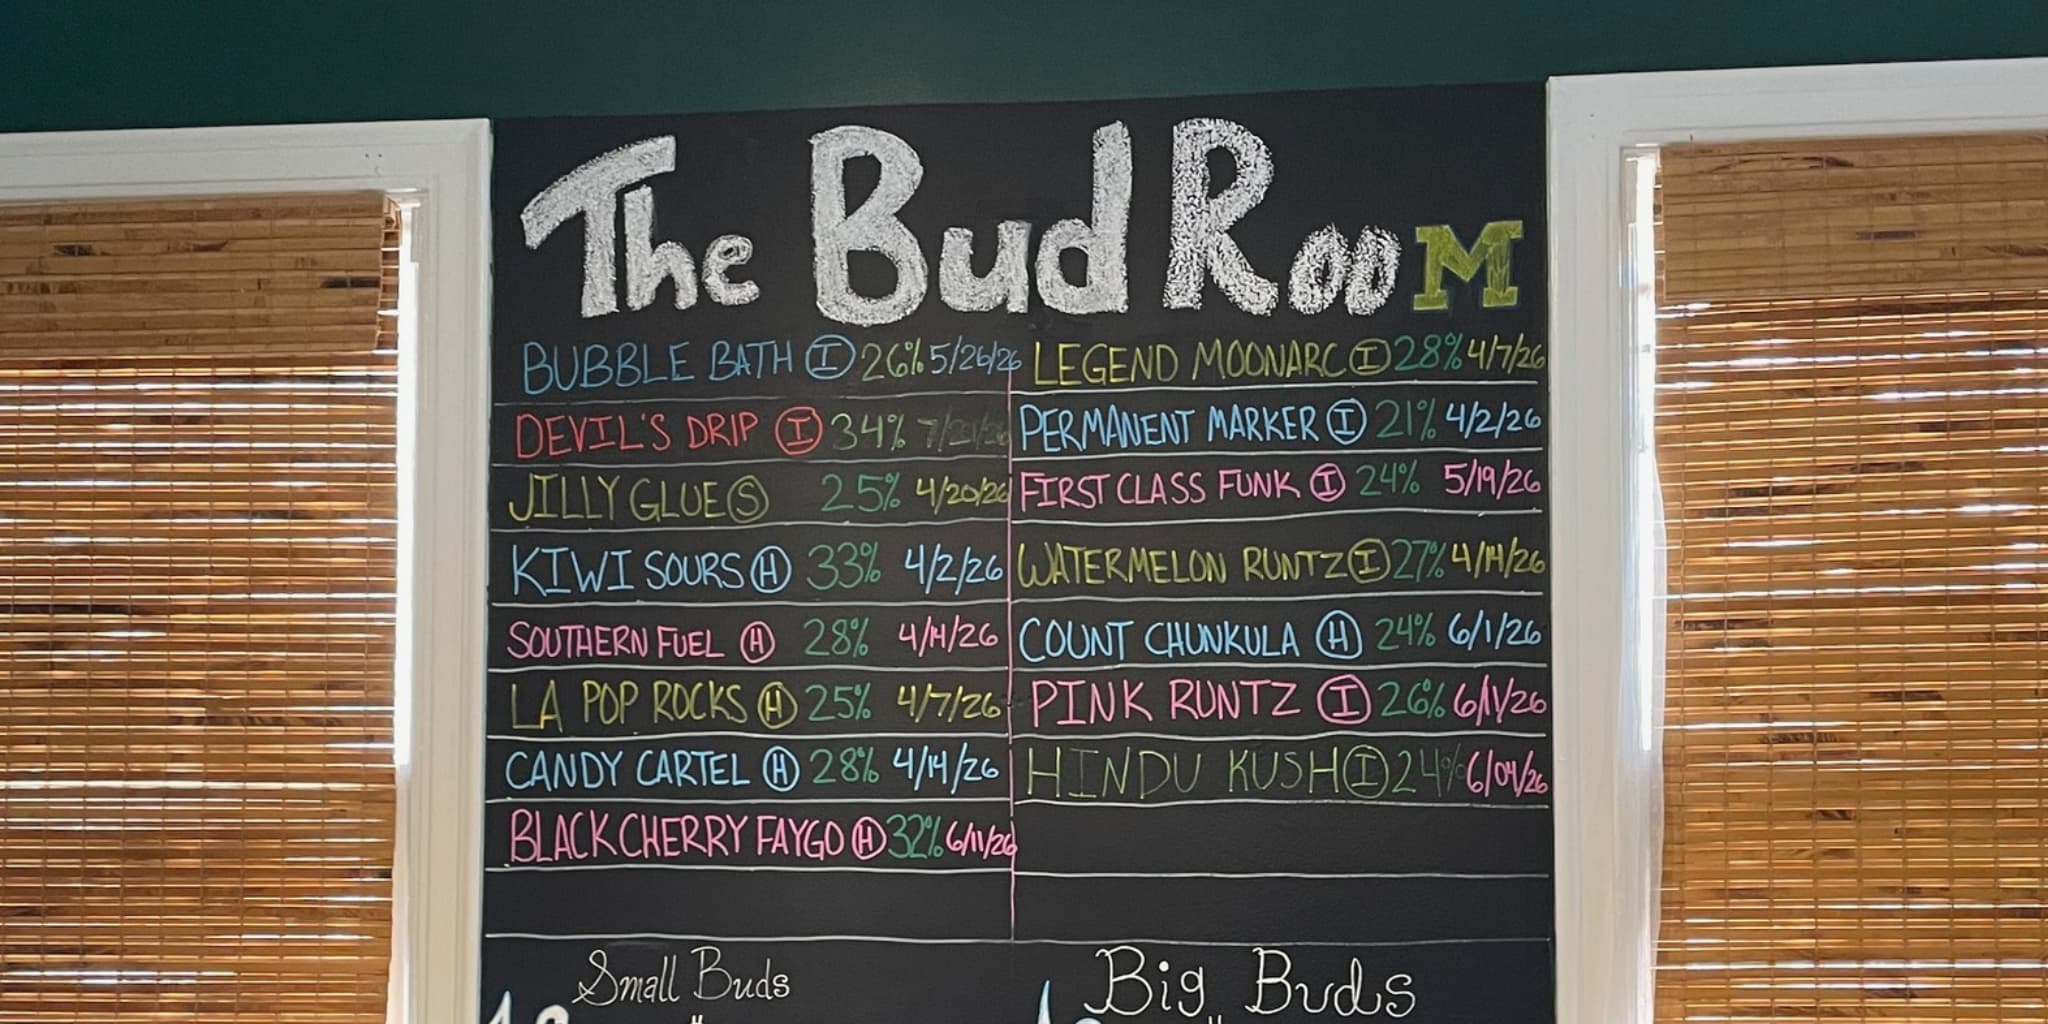 The Bud RooM
BUBBLE BATH I 26% 5/26/26
DEVIL'S DRIP I 34%
JILLY GLUE S 25% 4/20/26
KIWI SOURS H 33% 4/2/26
SOUTHERN FUEL H 28% 4/14/26
LA POP ROCKS H 25% 4/7/26
CANDY CARTEL H 28% 4/14/26
BLACK CHERRY FAYGO H 32% 6/11/26
LEGEND MOONARC I 28% 4/7/26
PERMANENT MARKER I 21% 4/2/26
FIRST CLASS FUNK I 24% 5/19/26
WATERMELON RUNTZ I 27% 4/14/26
COUNT CHUNKULA H 24% 6/1/26
PINK RUNTZ I 26% 6/1/26
HINDU KUSH I 24% 6/04/26
Small Buds
Big Buds